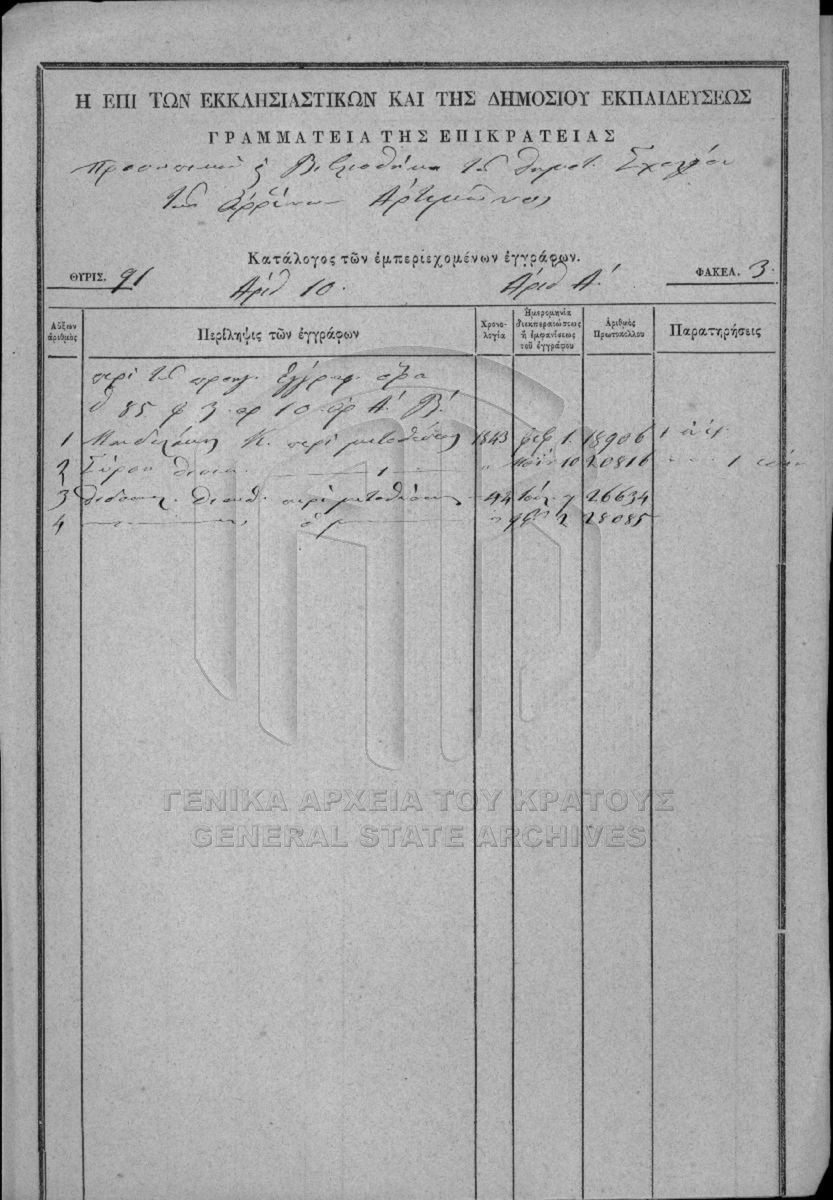 Η ΕΠΙ ΤΩΝ ΕΚΚΛΗΣΙΑΣΤΙΚΩΝ ΚΑΙ ΤΗΣ ΔΗΜΟΣΙΟΥ ΕΚΠΑΙΔΕΥΣΕΩΣ
ΓΡΑΜΜΑΤΕΙΑ ΤΗΣ ΕΠΙΚΡΑΤΕΙΑΣ
Βιβλιοθήκη τοῦ δημοτ. Σχολείου
τῶν ἀρρένων Ἀρτεμῶνος
Κατάλογος τῶν ἐμπεριεχομένων ἐγγράφων.
ΘΥΡΙΣ. 91 Ἀριθ 10. Ἀριθ Α. ΦΑΚΕΛ. 3.
Αὔξων ἀριθμὸς
Περίληψις τῶν ἐγγράφων
Χρονολογία
Ἡμερομηνία διεκπεραιώσεως ἢ ἐμφανίσεως τοῦ ἐγγράφου
Ἀριθμὸς Πρωτοκόλλου
Παρατηρήσεις
περὶ τῶν προηγ. ἐγγράφ. ὅρα
θ 85 φ 3. αρ 10 Α. Β.
1 Κ. περὶ μεταθέσεως 1843 φεβ 1. 18906
2 Σύρου διοικ. 10 20816
3 διδασκ. περὶ μεταθέσεως 44 7 26634
4 2 28085
ΓΕΝΙΚΑ ΑΡΧΕΙΑ ΤΟΥ ΚΡΑΤΟΥΣ
GENERAL STATE ARCHIVES